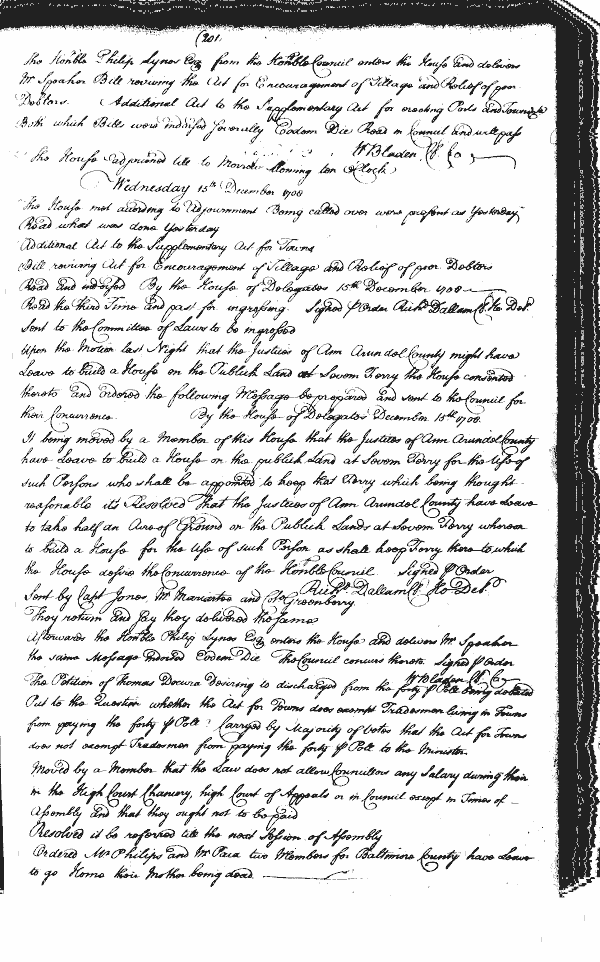 (201.
The Honble Philip Lynes Esq from the Honble Council enters the House and delivers
Mr Speaker Bill reviving the Act for Encouragement of Tillage and Relief of poor
Debtors. Additional Act to the Supplementary Act for erecting Ports and Towns &c
Both which Bills were indorsed severally Eodem Die Read in Council and will pass
W Bladen Cl Co
The House adjourned till to Morrow Morning ten oClock
Wednesday 15th December 1708
The House met according to Adjournment Being called over were present as Yesterday
Read what was done Yesterday
Additional Act to the Supplementary Act for Towns
Bill reviving Act for Encouragement of Tillage and Relief of poor Debtors
Read and indorsed By the House of Delegates 15th December 1708
Read the third Time and past for ingrossing. Signed ⅌ Order Richd Dallam Cl Ho Del.
Sent to the Committee of Laws to be ingrossed
Upon the Motion last Night that the Justices of Ann Arundel County might have
Leave to build a House on the Publick Land at Severn Ferry the House consented
thereto and ordered the following Message be prepared and sent to the Council for
their Concurrence By the House of Delegates December 15th 1708.
It being moved by a Member of this House that the Justices of Ann Arundel County
have Leave to build a House on the publick Land at Severn Ferry for the Use of
such Persons who shall be appointed to keep that Ferry which being thought
reasonable its Resolved That the Justices of Ann Arundel County have Leave
to take half an Acre of Ground on the Publick Lands at Severn Ferry whereon
to build a House for the Use of such Person as shall keep Ferry there to which
the House desire the Concurrence of the Honble Council Signed ⅌ Order
Richd Dallam Cl Ho Del.
Sent by Capt Jones, Mr Macartee and Greenberry
They return and say they delivered the same
Afterwards the Honble Philip Lynes Esq enters the House and delivers Mr Speaker
the same Message Indorsed Eodem Die The Council concurs thereto Signed ⅌ Order
W Bladen Cl Co
The Petition of Thomas Docura desiring to discharged from the forty ⅌ Poll being debated
Put to the Question whether the Act for Towns does exempt Tradesmen living in Towns
from paying the forty ⅌ Poll? Carryed by Majority of Votes that the Act for Towns
does not exempt Tradesmen from paying the forty ⅌ Poll to the Minister
Moved by a Member that the Law does not allow Councillors any Salary during their
in the High Court Chancery, high Court of Appeals or in Council except in Times of
Assembly and that they ought not to be paid
Resolved it be referred till the next Session of Assembly
Ordered Mr Philips and Mr Paca two Members for Baltimore County have Leave
to go Home their Mother being dead